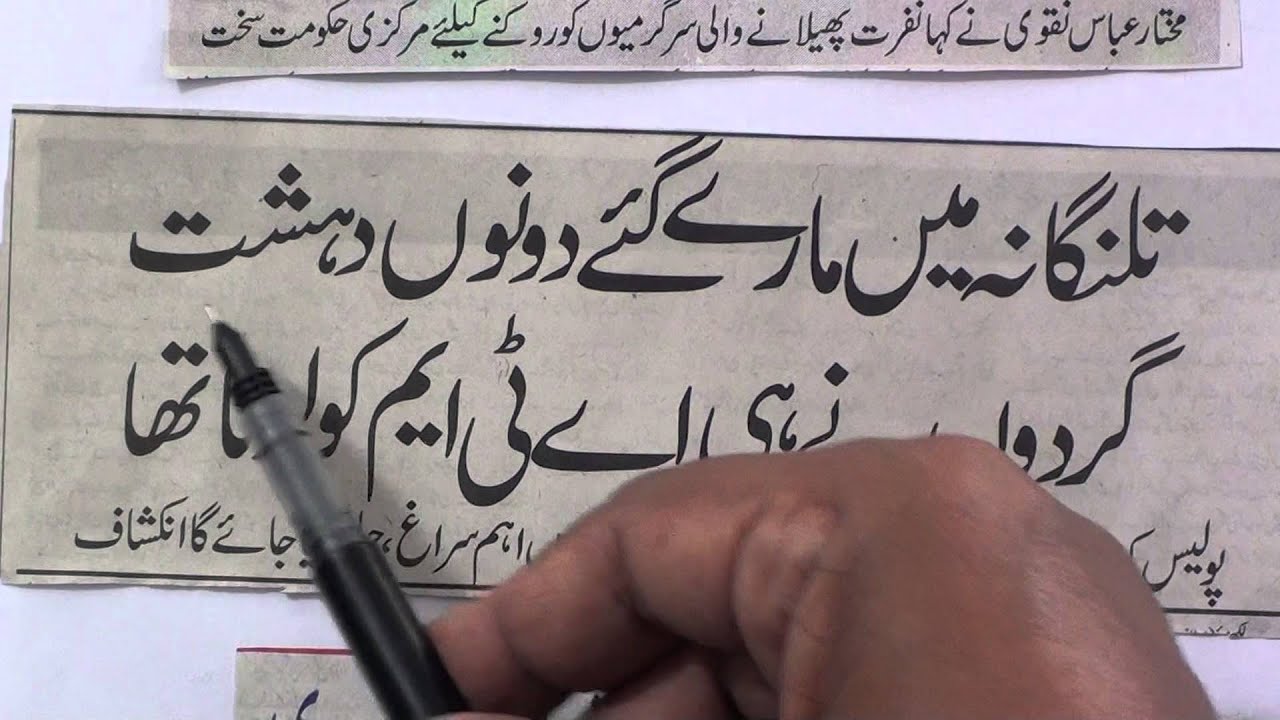 مختار عباس نقوی نے کہا نفرت پھیلانے والی سرگرمیوں کو روکنے کیلئے مرکزی حکومت سخت
تلنگانہ میں مارے گئے دونوں دہشت
گردوں نے ہی اے ٹی ایم کو تھا
پولیس اہم سراغ، جائے گا انکشاف